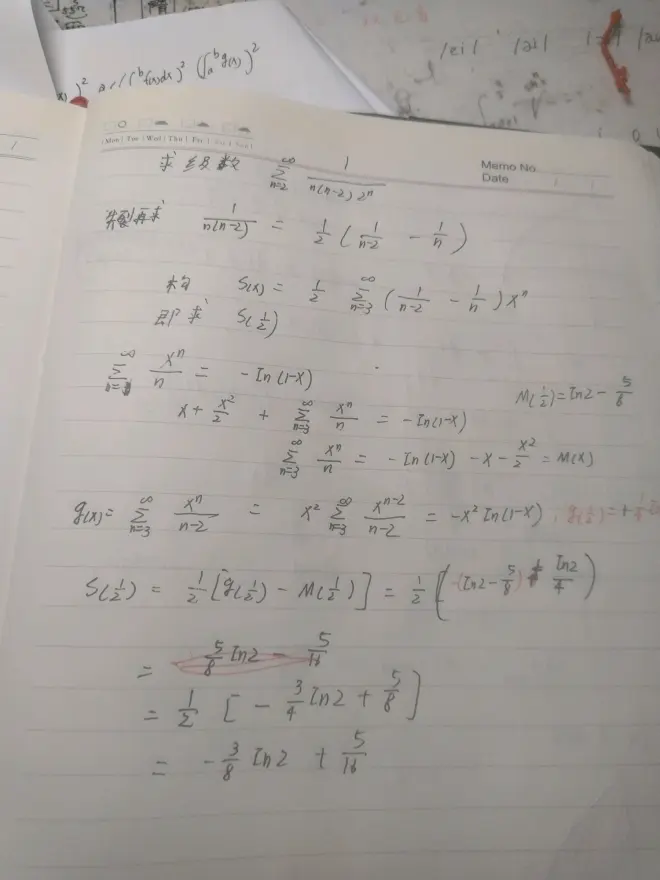 (∫_a^b f(x)dx)² (∫_a^b g(x))²
|ei| |ai|
Mon Tue Wed Thu Fri Sat Sun
Memo No.
Date / /
求级数 ∑_{n=2}^∞ 1/(n(n-2)2ⁿ)
先裂再求 1/(n(n-2)) = 1/2 (1/(n-2) - 1/n)
构 S(x) = 1/2 ∑_{n=3}^∞ (1/(n-2) - 1/n) xⁿ
即求 S(1/2)
∑_{n=1}^∞ xⁿ/n = -In(1-x)
M(1/2) = In2 - 5/8
x + x²/2 + ∑_{n=3}^∞ xⁿ/n = -In(1-x)
∑_{n=3}^∞ xⁿ/n = -In(1-x) - x - x²/2 = M(x)
g(x) = ∑_{n=3}^∞ xⁿ/(n-2) = x² ∑_{n=3}^∞ xⁿ⁻²/(n-2) = -x² In(1-x), g(1/2) = +
S(1/2) = 1/2 [g(1/2) - M(1/2)] = 1/2 [-(In2 - 5/8) + In2/4)
= 5/8 In2 - 5/16
= 1/2 [-3/4 In2 + 5/8]
= -3/8 In2 + 5/16